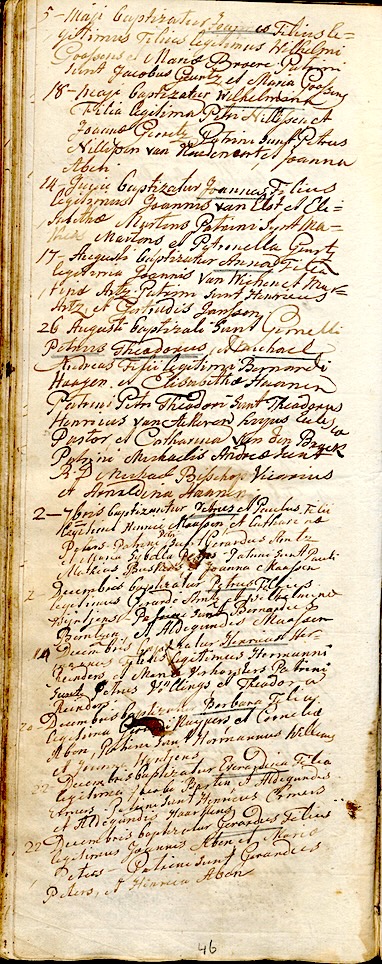 5 - Maji baptizatur Joannes Filius le=
gitimus Filius legitimus Wilhelmi
Goossens et Mariæ Broere Patrini
sunt Jacobus Gurtz et Maria Goossens
18 - Maji baptizatur Wilhelmena
Filia legitima Petri Nillessen et
Joannæ Patrini sunt Petrus
Nillessen van et Joanna
Aben
14 Junii baptizatur Joannes Filius
legitimus Joannis van Elst et Eli=
sabethæ Mertens Patrini sunt Ma=
Martens et Petronella Gurtz
17 - Augusti baptizatur Anna Filia
legitima Joannis van Wichen et Mar=
Artz Patrini sunt Henricus
Artz et Gertrudis Janssen
26 Augusti baptizati sunt Gemelli
Petrus Theodorus et Michael
Andreas Filii legitimi Bernardi
Haagen et Elisabethæ Haanen
Patrini Petri Theodori sunt Theodorus
Henricus van Ackeren hujus Eccles
Pastor et Catharina van den Broeck
Patrini Michaelis Andreæ sunt
R: D Michael Bisschop Vicarius
et Arnoldina Haanen
2 - 7bris baptizantur Petrus et Paulus Filii
legitimi Maassen et Catharinæ
Peters Patrini sunt Gerardus Artz
et Sibella Patrini sunt Pauli
et Joanna Maassen
2 Decembris baptizatur Petrus Filius
legitimus Gerardi Artz et Wilhelminæ
Wijntjens Patrini sunt Bernardus
et Aldegundis Maassen
14 Decembris baptizatur Henricus Her=
Filius legitimus Hermanni
Reinders et Mariæ Patrini
sunt Petrus Willings et Theodora
Reinders
20 Decembris baptizatur Barbara Filia
legitima Kuijpers et Corneliæ
Aben, Patrini sunt Hermannus Willems
et Wijntjens
22 - Decembris baptizatur Everdina Filia
legitima Jacobi et Aldegundis
Patrini sunt Henricus Cremers
et Aldegundis
22 Decembris baptizatur Gerardus Filius
legitimus Joannis Aben et Maria
Peters - Patrini sunt Gerardus
Peters, et Henrica Aben
46